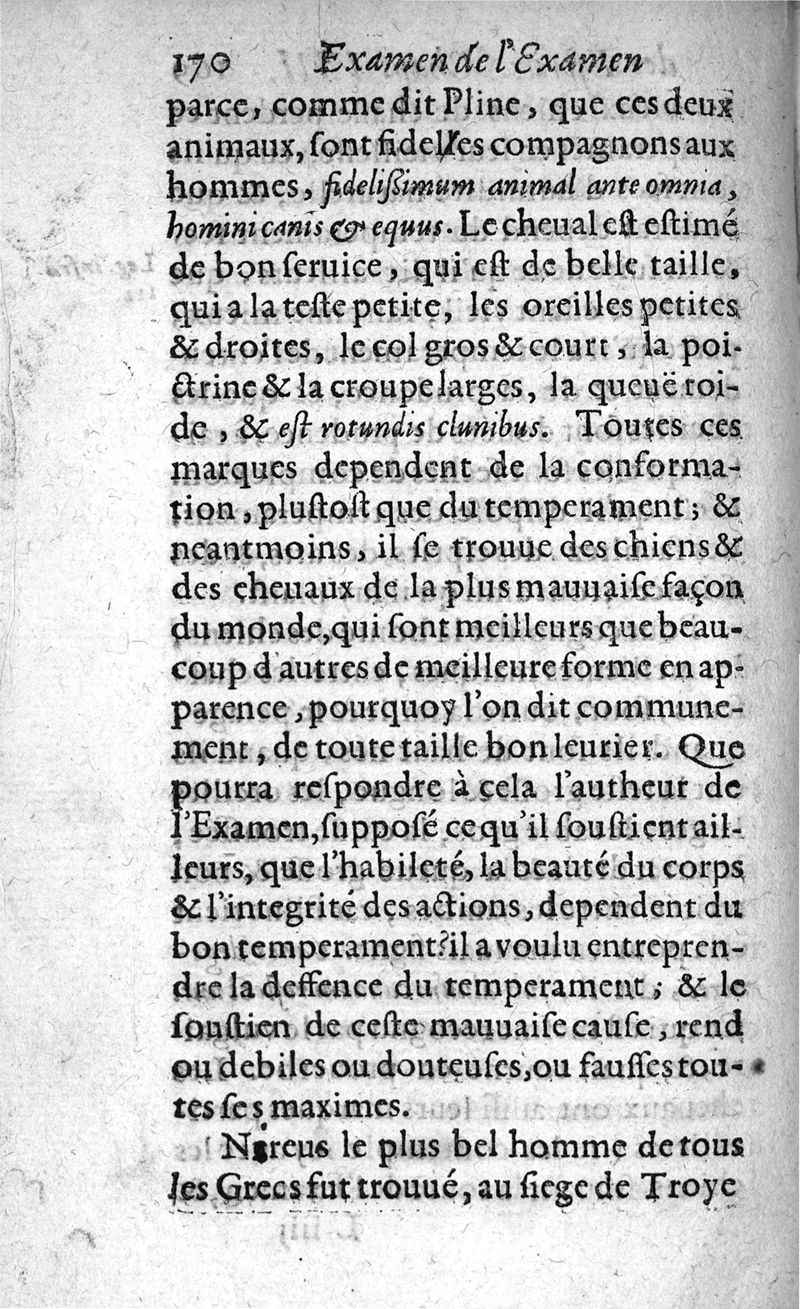 170 Examen de l'Examen
parce, comme dit Pline, que ces deux
animaux, ſont fidelles compagnons aux
hommes, fideliſſimum animal ante omnia,
homini canis & equus. Le cheual eſt eſtimé
de bon ſeruice, qui eſt de belle taille,
qui a la teſte petite, les oreilles petites
& droites, le col gros & court, la poi-
ctrine & la croupe larges, la queuë roi-
de, & eſt rotundis clunibus. Toutes ces
marques dependent de la conforma-
tion, pluſtoſt que du temperament; &
neantmoins, il ſe trouue des chiens &
des cheuaux de la plus mauuaiſe façon
du monde, qui ſont meilleurs que beau-
coup d'autres de meilleure forme en ap-
parence, pourquoy l'on dit commune-
ment, de toute taille bon leurier. Que
pourra reſpondre à cela l'autheur de
l'Examen, ſuppoſé ce qu'il ſouſtient ail-
leurs, que l'habileté, la beauté du corps
& l'integrité des actions, dependent du
bon temperament? il a voulu entrepren-
dre la deffence du temperament; & le
ſouſtien de ceſte mauuaiſe cauſe, rend
ou debiles ou douteuſes, ou fauſſes tou-
tes ſes maximes.
Nireus le plus bel homme de tous
les Grecs fut trouué, au ſiege de Troye